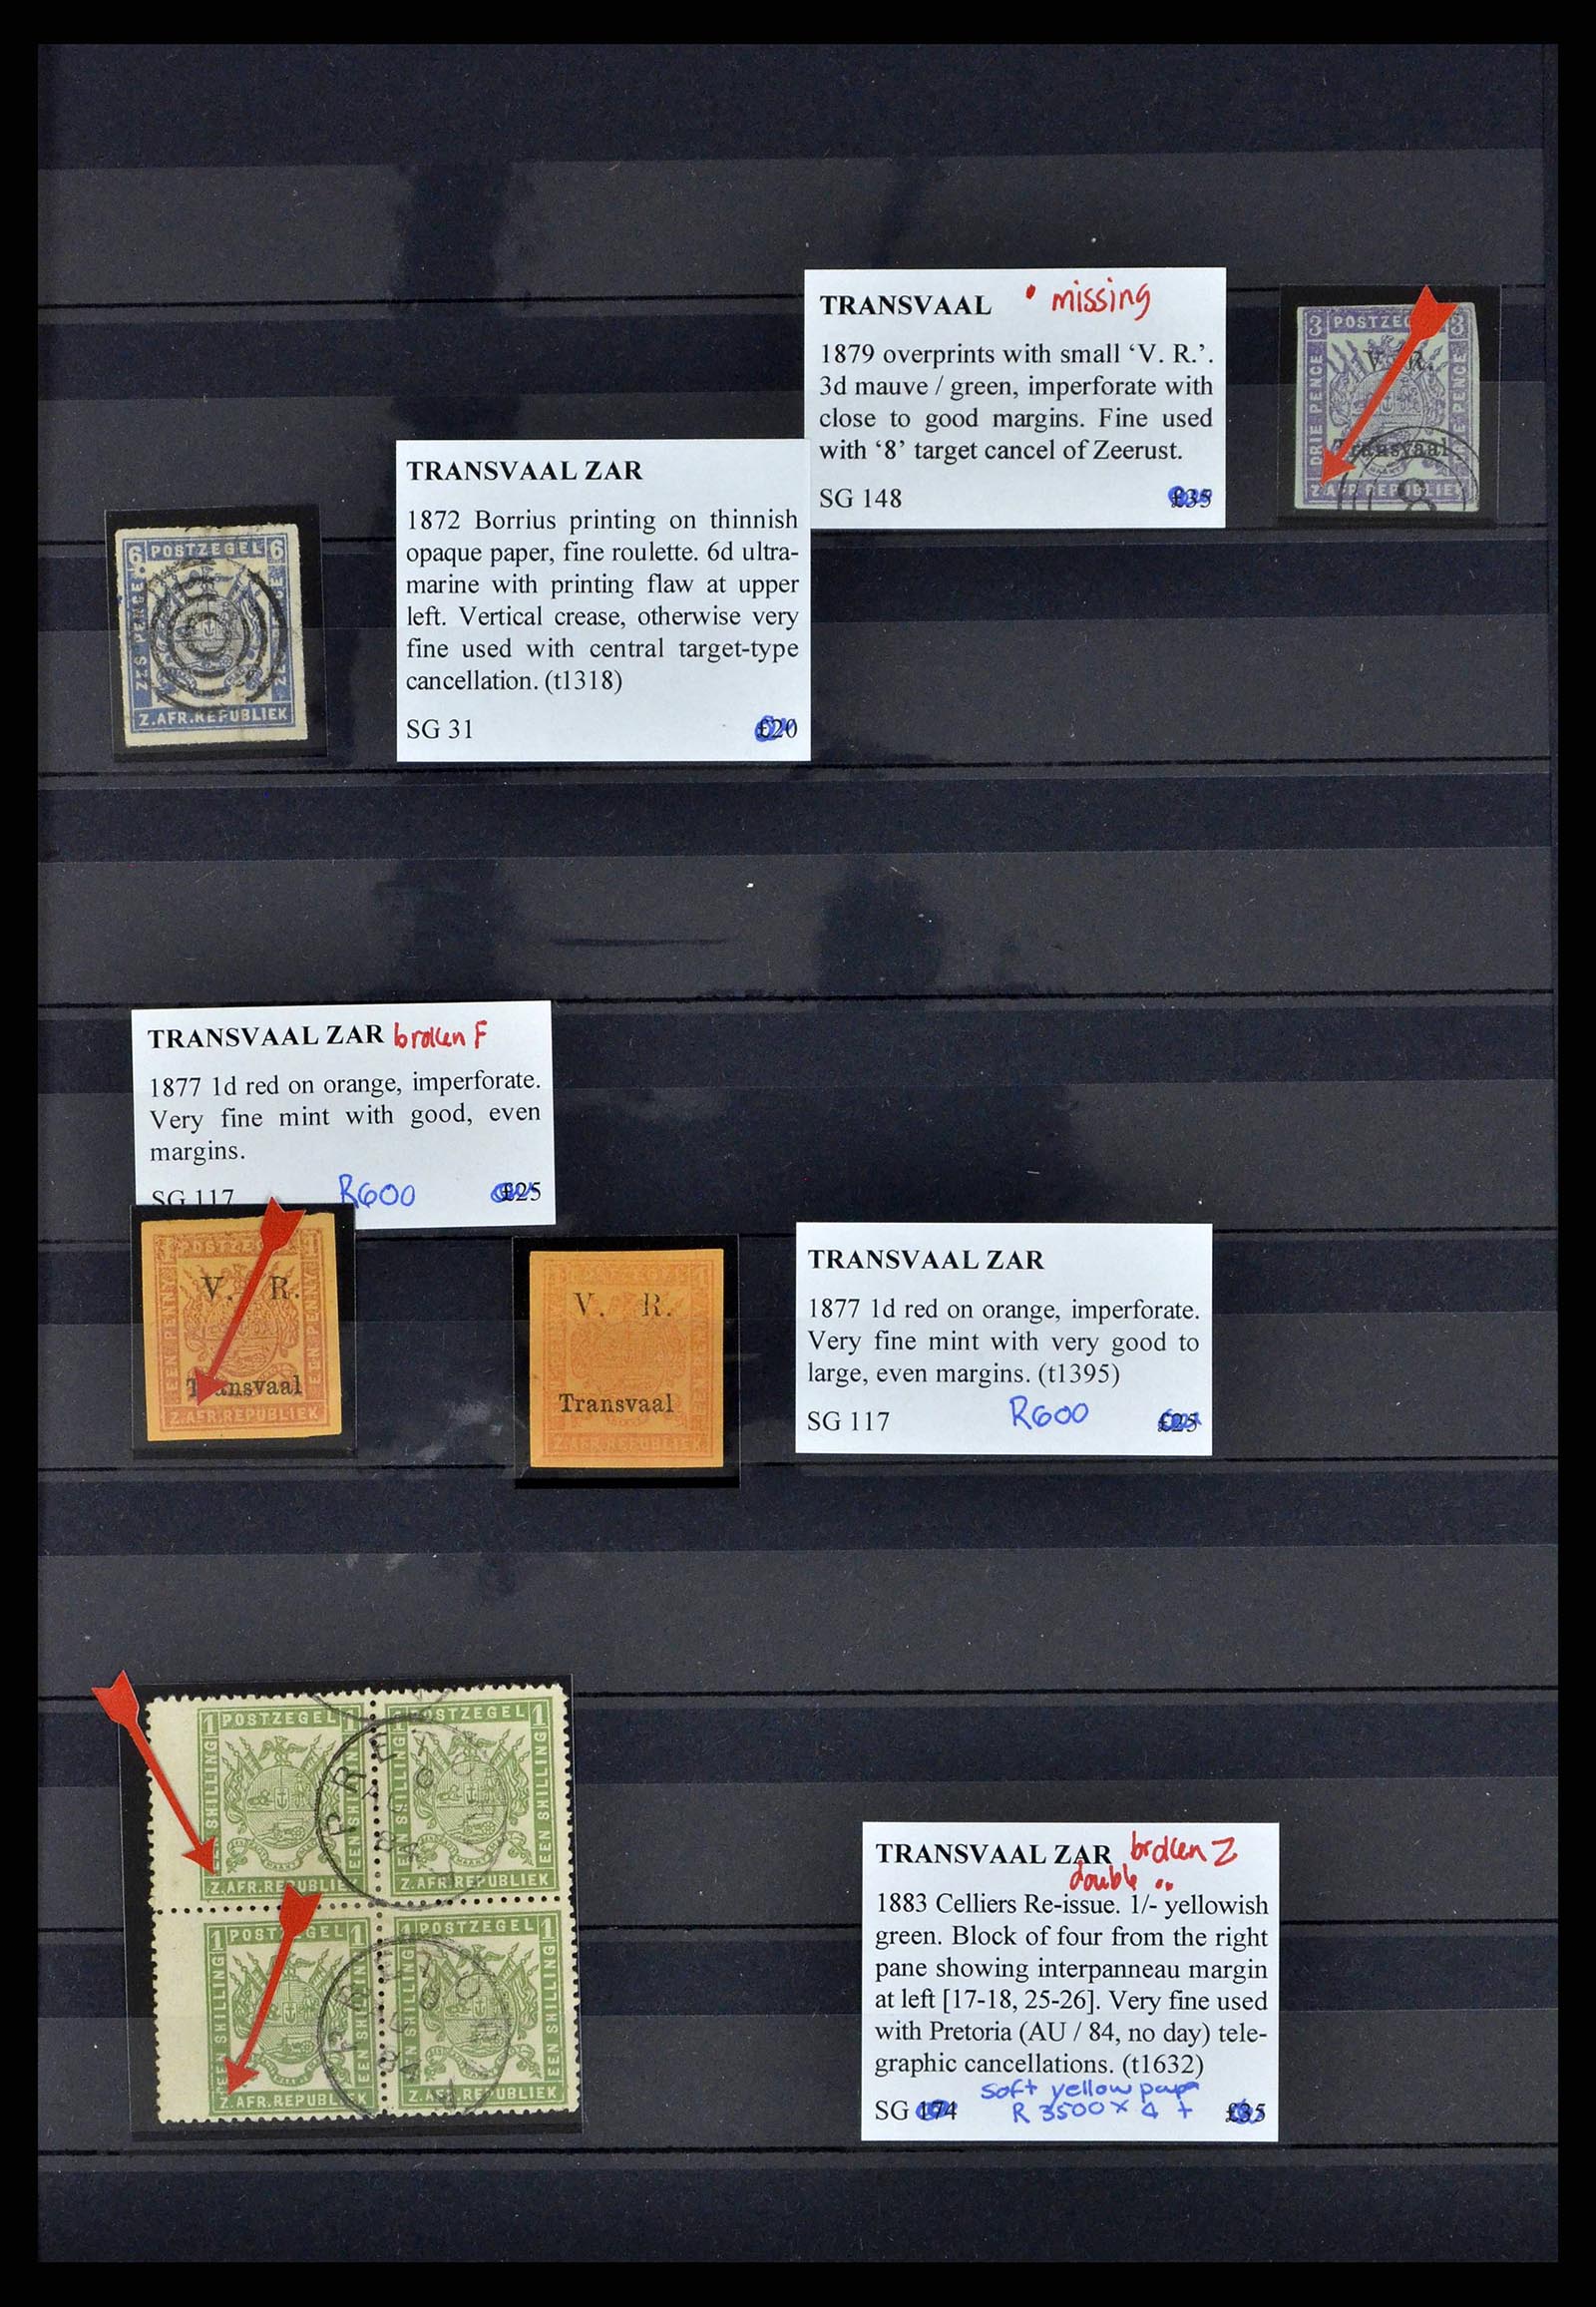 TRANSVAAL • missing
1879 overprints with small ‘V. R.’.
3d mauve / green, imperforate with
close to good margins. Fine used
with ‘8’ target cancel of Zeerust.
SG 148 £35
3 POSTZEG 3
DRIE PENCE
V. R.
Transvaal
Z. AFR. REPUBLIEK
8
TRANSVAAL ZAR
1872 Borrius printing on thinnish
opaque paper, fine roulette. 6d ultra-
marine with printing flaw at upper
left. Vertical crease, otherwise very
fine used with central target-type
cancellation. (t1318)
SG 31 £20
6 POSTZEGEL 6
ZES PENCE
Z. AFR. REPUBLIEK
TRANSVAAL ZAR broken F
1877 1d red on orange, imperforate.
Very fine mint with good, even
margins.
SG 117 R600 £25
POSTZEGEL 1
EEN PENNY
EEN PENNY
V. R.
Transvaal
Z. AFR. REPUBLIEK
V. R.
Transvaal
Z. AFR. REPUBLIEK
TRANSVAAL ZAR
1877 1d red on orange, imperforate.
Very fine mint with very good to
large, even margins. (t1395)
SG 117 R600 £25
1 POSTZEGEL 1
EEN SHILLING
EEN SHILLING
Z. AFR. REPUBLIEK
1 POSTZEGEL 1
EEN SHILLING
EEN SHILLING
Z. AFR. REPUBLIEK
1 POSTZEGEL 1
EEN SHILLING
EEN SHILLING
Z. AFR. REPUBLIEK
1 POSTZEGEL 1
EEN SHILLING
EEN SHILLING
Z. AFR. REPUBLIEK
TRANSVAAL ZAR broken Z
double ..
1883 Celliers Re-issue. 1/- yellowish
green. Block of four from the right
pane showing interpanneau margin
at left [17-18, 25-26]. Very fine used
with Pretoria (AU / 84, no day) tele-
graphic cancellations. (t1632)
soft yellow pap
SG 174 R 3500 x 4 + £35